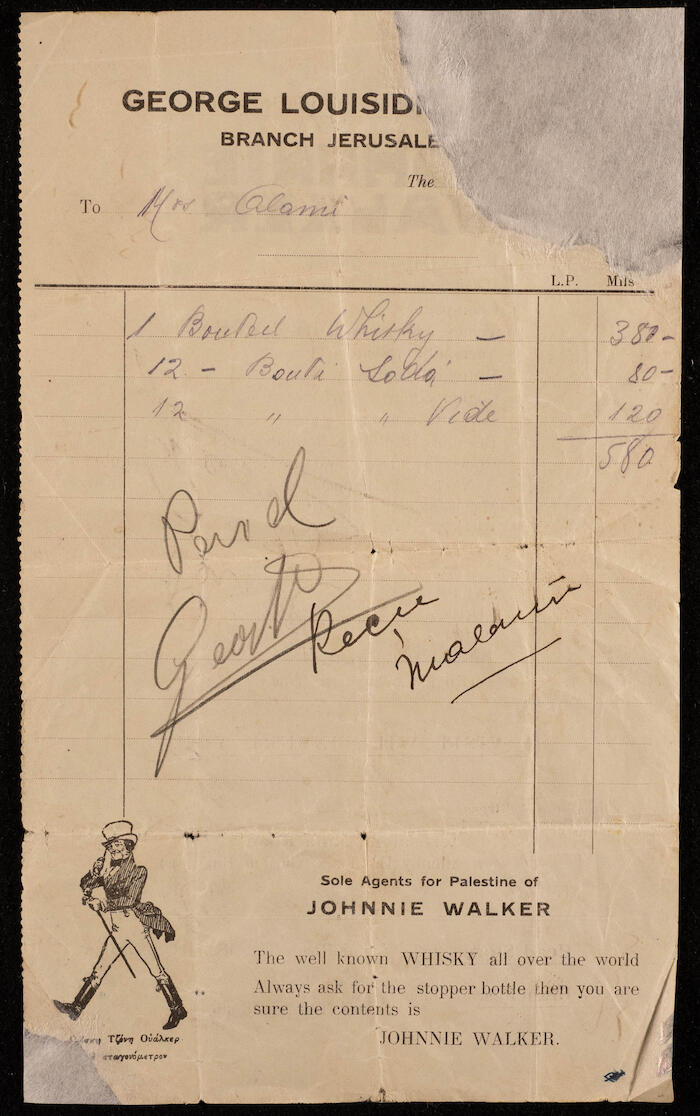 GEORGE LOUISIDI
BRANCH JERUSALE
The
To Mrs Alami
L.P. Mils
1 Bouteil Whisky — 380-
12 - Bouti Soda — 80-
12 " " Vide 120
580
Sole Agents for Palestine of
JOHNNIE WALKER
The well known WHISKY all over the world
Always ask for the stopper bottle then you are
sure the contents is
JOHNNIE WALKER.
Τζόνη Οὐάλκερ
σταγονόμετρον